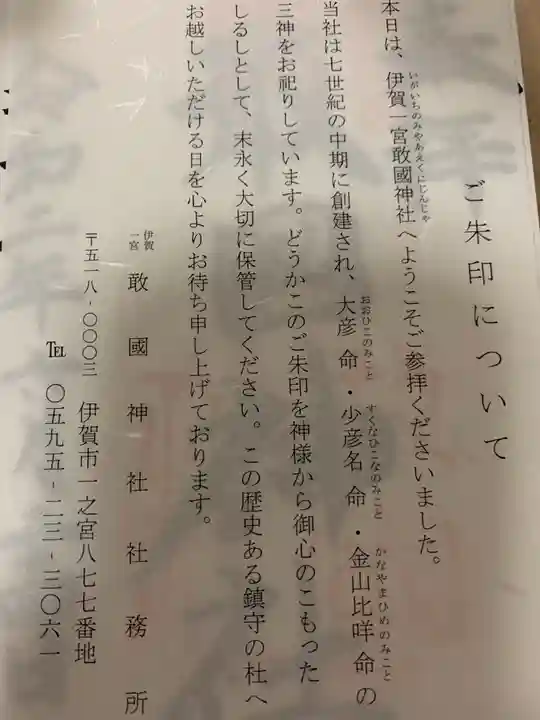 ご朱印について
本日は、伊賀一宮敢國神社へようこそご参拝くださいました。
いがいちのみやあえくにじんじゃ
当社は七世紀の中期に創建され、大彦命・少彦名命・金山比咩命の
おおひこのみこと
すくなひこなのみこと
かなやまひめのみこと
三神をお祀りしています。どうかこのご朱印を神様から御心のこもった
しるしとして、末永く大切に保管してください。この歴史ある鎮守の杜へ
お越しいただける日を心よりお待ち申し上げております。
伊賀一宮 敢國神社社務所
〒五一八-〇〇〇三 伊賀市一之宮八七七番地
℡ 〇五九五-二三-三〇六一